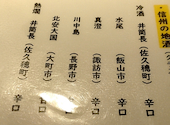 信州の地酒
冷酒 井筒長（佐久穂町） 辛口
水尾（飯山市） 辛口
真澄（諏訪市） 辛口
川中島（長野市） 辛口
北安大国（大町市） 辛口
熱燗 井筒長（佐久穂町） 辛口